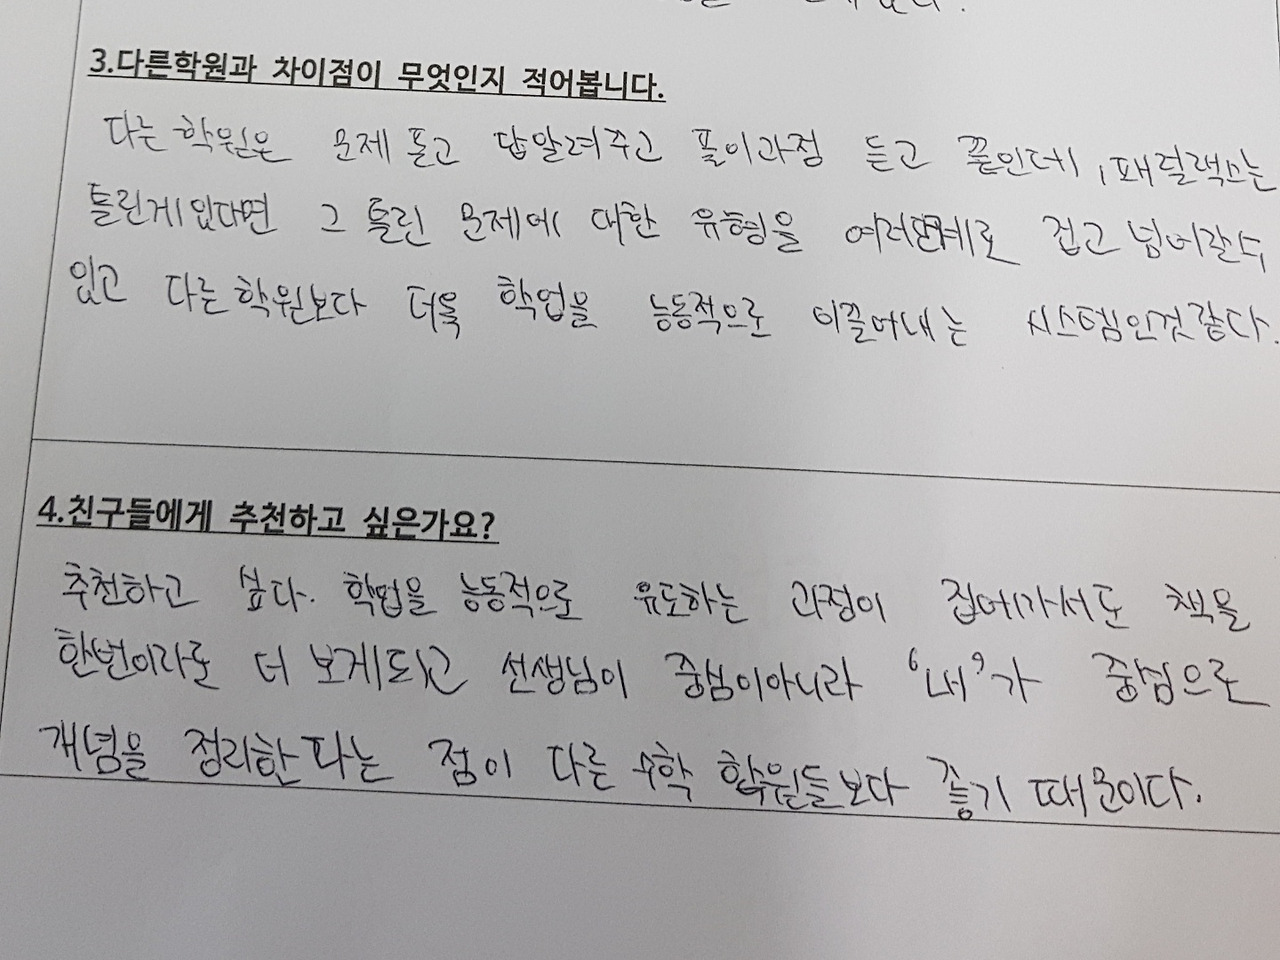 3.다른학원과 차이점이 무엇인지 적어봅니다.
다른 학원은 문제 풀고 답알려주고 풀이과정 듣고 끝인데, 패럴랙스는
틀린게있다면 그 틀린 문제에 대한 유형을 여러단계로 겁고 넘어갈수
있고 다른학원보다 더욱 학업을 능동적으로 이끌어내는 시스템인것같다.
4.친구들에게 추천하고 싶은가요?
추천하고 싶다. 학업을 능동적으로 유도하는 과정이 집에가서도 책을
한번이라도 더 보게되고 선생님이 중심이아니라 '내'가 중심으로
개념을 정리한다는 점이 다른 수학 학원들보다 좋기 때문이다.